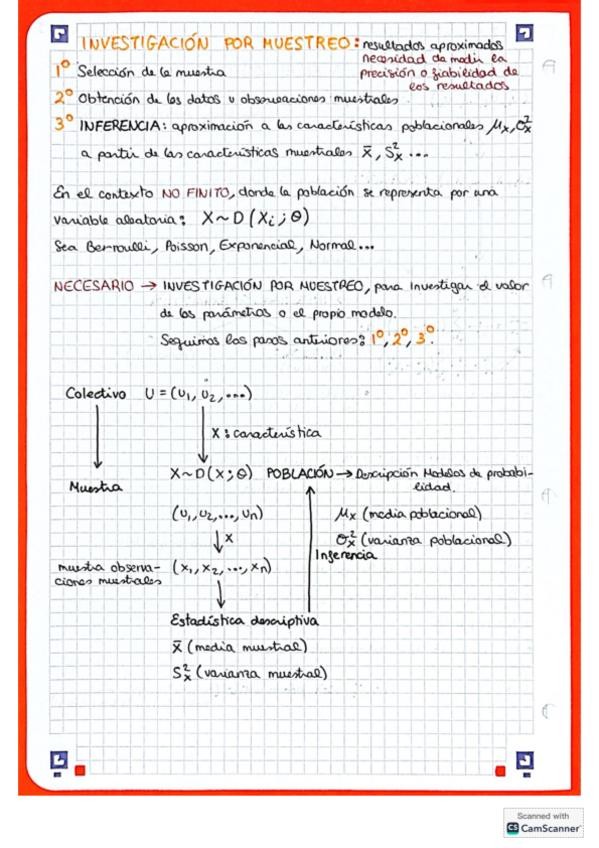 INVESTIGACIÓN POR MUESTREO: resultados aproximados
necesidad de medir la
precisión o fiabilidad de
los resultados
1º Selección de la muestra
2º Obtención de los datos u observaciones muestrales
3º INFERENCIA: aproximación a las características poblacionales μx, σ²x
a partir de las características muestrales x̄, S²x ...
En el contexto NO FINITO, donde la población se representa por una
variable aleatoria: X~D(Xi; θ)
Sea Bernoulli, Poisson, Exponencial, Normal...
NECESARIO → INVESTIGACIÓN POR MUESTREO, para investigar el valor
de los parámetros o el propio modelo.
Seguimos los pasos anteriores: 1º, 2º, 3º.
Colectivo U = (U1, U2, ...)
X: característica
Muestra
X~D(X; θ) POBLACIÓN → Descripción Modelos de probabi-
lidad.
(U1, U2, ..., Un)
μx (media poblacional)
X
σ²x (varianza poblacional)
Inferencia
muestra observa-
ciones muestrales
(x1, x2, ..., xn)
Estadística descriptiva
x̄ (media muestral)
S²x (varianza muestral)
Scanned with
CS CamScanner